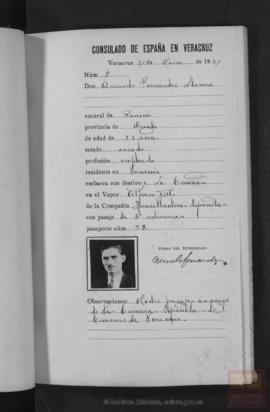 CONSULADO DE ESPAÑA EN VERACRUZ
Veracruz 31 de Marzo de 193
Núm 8
Don Armando Fernandez
natural de
provincia de Oviedo
de edad de 33 años
estado casado
profesión empleado
residente en Veracruz
embarca con destino a La Coruña
en el Vapor Alfonso XIII
de la Compañía Trasatlantica Española
con pasaje de 3ª ordinaria
pasaporte núm. 93.
FIRMA DEL INTERESADO
Observaciones: Medio pasaje a cargo
de la Camara Española de
Comercio de Veracruz.
© Archivos Estatales, cultura.gob.es